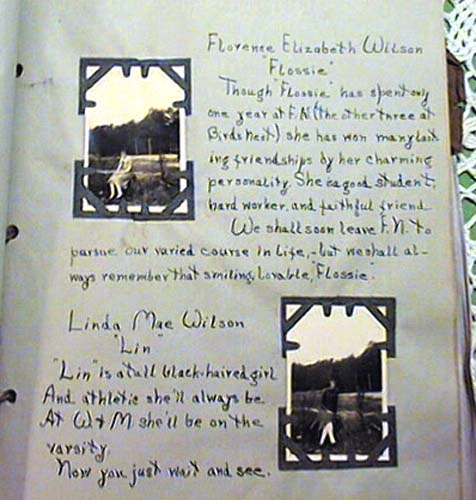 Florence Elizabeth Wilson
"Flossie"
Though "Flossie" has spent only
one year at F.N. (the other three at
Birds Nest) she has won many last
ing friendships by her charming
personality. She is a good student,
hard worker, and faithful friend.
We shall soon leave F.N. to
pursue our varied course in life,-but we shall al-
ways remember that smiling, lovable, "Flossie".
Linda Mae Wilson
"Lin"
"Lin" is a tall black-haired girl
And athletic she'll always be.
At W & M she'll be on the
varsity,
Now you just wait and see.